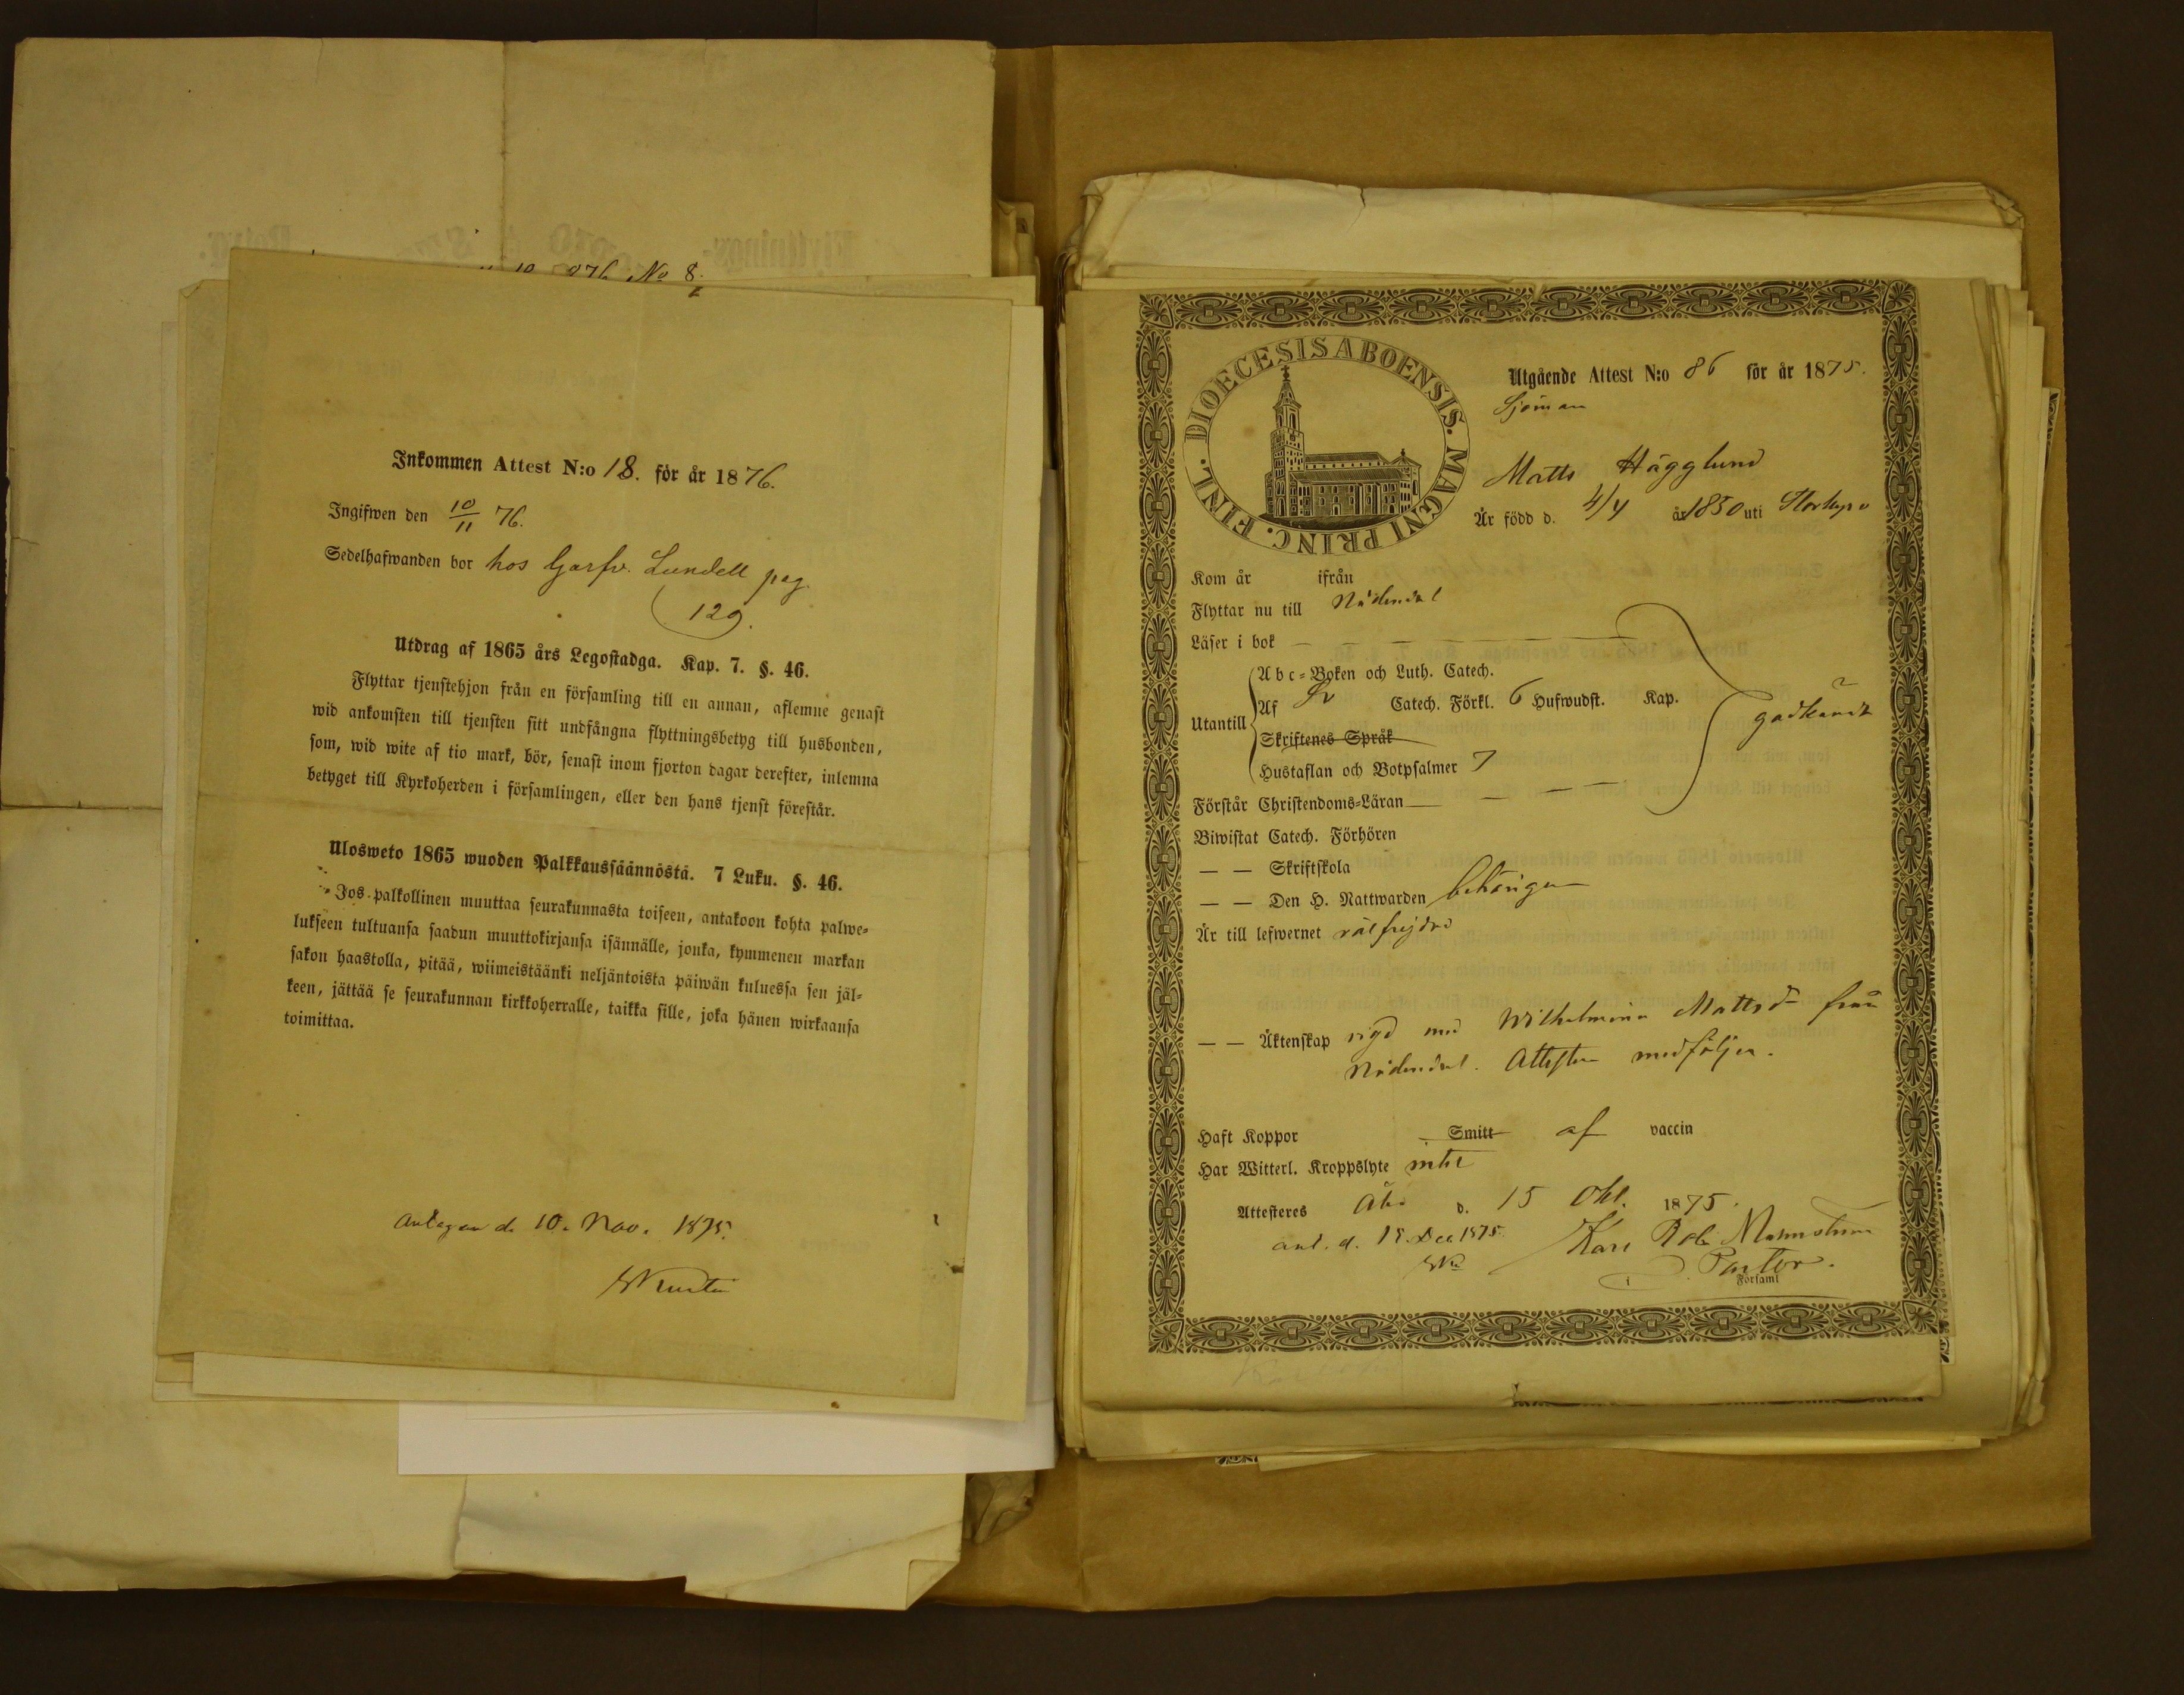 No 8.
Inkommen Attest N:o 18. för år 1876.
Ingifwen den 10/11 76.
Sedelhafwanden bor hos Garfv. Lundell pag.
129.
Utdrag af 1865 års Legostadga. Kap. 7. §. 46.
Flyttar tjenstehjon från en församling till en annan, aflemne genast
wid ankomsten till tjensten sitt undfångna flyttningsbetyg till husbonden,
som, wid wite af tio mark, bör, senast inom fjorton dagar derefter, inlemna
betyget till Kyrkoherden i församlingen, eller den hans tjenst förestår.
Ulosweto 1865 wuoden Palkkaussäännöstä. 7 Luku. §. 46.
Jos palkollinen muuttaa seurakunnasta toiseen, antakoon kohta palwe-
lukseen tultuansa saadun muuttokirjansa isännälle, jonka, kymmenen markan
sakon haastolla, pitää, wiimeistäänki neljäntoista päiwän kuluessa sen jäl-
keen, jättää se seurakunnan kirkkoherralle, taikka sille, joka hänen wirkaansa
toimittaa.
Antagen d. 10. Nov. 1875.
DIOECESIS ABOENSIS. MAGNI PRINC. FINL.
Utgående Attest N:o 86 för år 1875.
Sjöman
Matts Hägglund
Är född d. 4/4 år 1850 uti Storkyro
Kom år ifrån
Flyttar nu till Nådendal
Läser i bok
Abc-Boken och Luth. Catech.
Utantill Af Sv Catech. Förkl. 6 Hufwudst. Kap. godkändt
Skriftenes Språk
Hustaflan och Botpsalmer 7
Förstår Christendoms-Läran
Biwistat Catech. Förhören
— — Skriftskola
— — Den H. Nattwarden behörigen
Är till lefwernet välfrejdad
— — Äktenskap vigd med Wilhelmina Mattsdr från
Nådendal. Attesten medföljer.
Haft Koppor Smitt af vaccin
Har Witterl. Kroppslyte intet
Attesteres Åbo d. 15 Okt. 1875.
ant. d. 15 Dec 1875. Karl Rob. Malmström
Pastor.
Församl